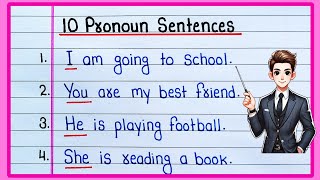 10 Pronoun Sentences
1. I am going to school.
2. You are my best friend.
3. He is playing football.
4. She is reading a book.